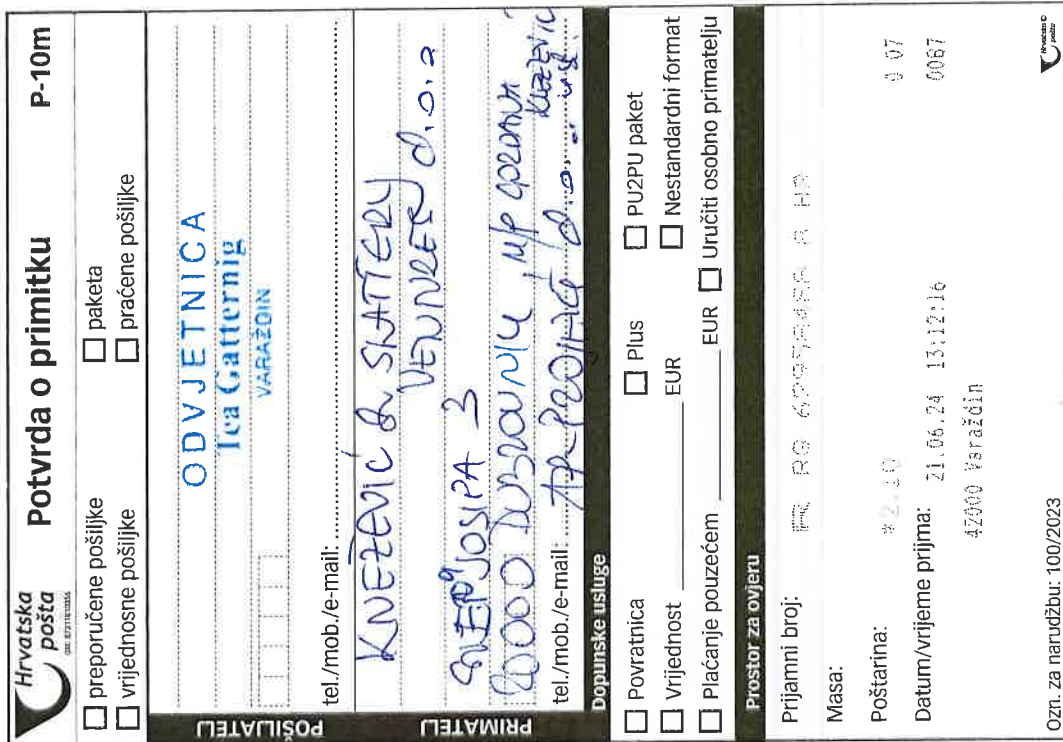 Hrvatska pošta
Potvrda o primitku
P-10m
preporučene pošiljke
paketa
vrijednosne pošiljke
praćene pošiljke
POŠILJATELJ
ODVJETNICA
Tea Gatternig
VARAŽDIN
tel./mob./e-mail:
PRIMATELJ
KNEZEVIĆ & SLATTERY
VENNREERJ d.o.o
JOSIPA 3
20000 DUBROVNIK, n/p GORDANA KNEZEVIĆ
tel./mob./e-mail:
Dopunske usluge
Povratnica
Plus
PU2PU paket
Vrijednost EUR
Nestandardni format
Plaćanje pouzećem EUR
Uručiti osobno primatelju
Prostor za ovjeru
Prijamni broj: RG
Masa:
Poštarina: *2.10 0 07
Datum/vrijeme prijma: 21.06.24 13:12:16 0087
42000 Varaždin
Ozn. za narudžbu: 100/2023
Hrvatska pošta